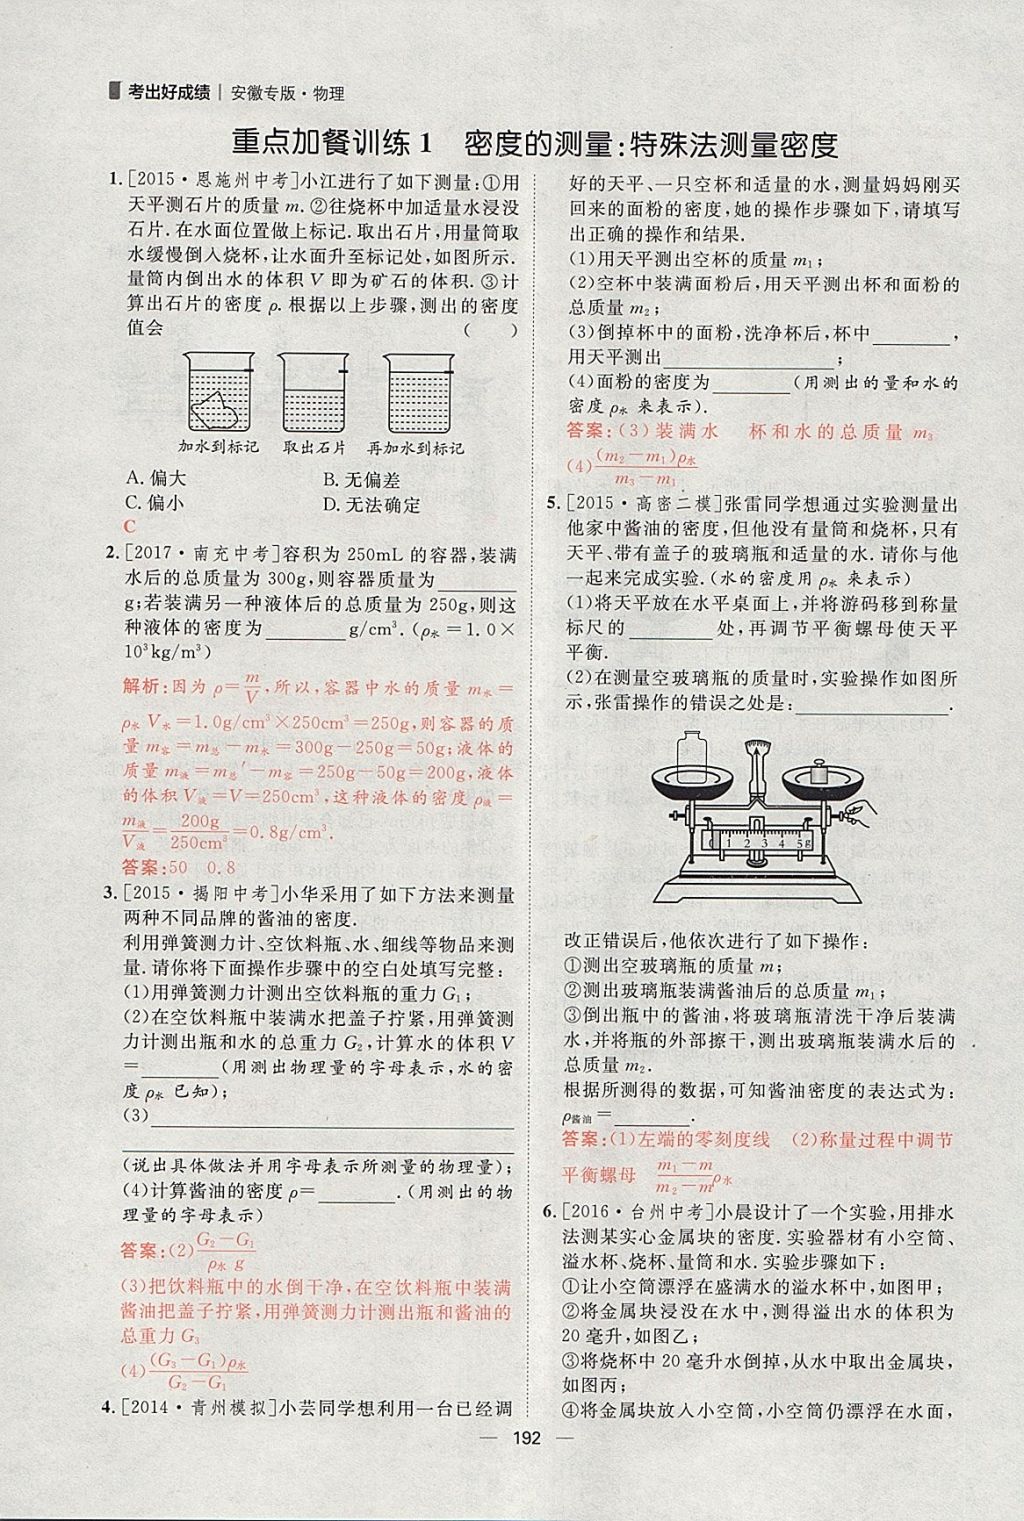 考出好成绩 | 安徽专版·物理
重点加餐训练1 密度的测量:特殊法测量密度
1. [2015·恩施州中考]小江进行了如下测量:①用
天平测石片的质量 m. ②往烧杯中加适量水浸没
石片. 在水面位置做上标记. 取出石片,用量筒取
水缓慢倒入烧杯,让水面升至标记处,如图所示.
量筒内倒出水的体积 V 即为矿石的体积. ③计
算出石片的密度 ρ. 根据以上步骤,测出的密度
值会 ( )
加水到标记 取出石片 再加水到标记
A. 偏大 B. 无偏差
C. 偏小 D. 无法确定
C
2. [2017·南充中考]容积为 250mL 的容器,装满
水后的总质量为 300g,则容器质量为________
g;若装满另一种液体后的总质量为 250g,则这
种液体的密度为________g/cm³. (ρ水=1.0×
10³kg/m³)
解析:因为 ρ=m/V,所以,容器中水的质量 m水=
ρ水V水=1.0g/cm³×250cm³=250g,则容器的质
量 m容=m总-m水=300g-250g=50g;液体的
质量 m液=m总′-m容=250g-50g=200g,液体
的体积 V液=V=250cm³,这种液体的密度 ρ液=
m液/V液=200g/250cm³=0.8g/cm³.
答案:50 0.8
3. [2015·揭阳中考]小华采用了如下方法来测量
两种不同品牌的酱油的密度.
利用弹簧测力计、空饮料瓶、水、细线等物品来测
量. 请你将下面操作步骤中的空白处填写完整:
(1)用弹簧测力计测出空饮料瓶的重力 G₁;
(2)在空饮料瓶中装满水把盖子拧紧,用弹簧测
力计测出瓶和水的总重力 G₂,计算水的体积 V
=________(用测出物理量的字母表示,水的密
度 ρ水 已知);
(3)________________
________________
(说出具体做法并用字母表示所测量的物理量);
(4)计算酱油的密度 ρ=________. (用测出的物
理量的字母表示)
答案:(2)(G₂-G₁)/(ρ水 g)
(3)把饮料瓶中的水倒干净,在空饮料瓶中装满
酱油把盖子拧紧,用弹簧测力计测出瓶和酱油的
总重力 G₃
(4)(G₃-G₁)ρ水/(G₂-G₁)
4. [2014·青州模拟]小芸同学想利用一台已经调
好的天平、一只空杯和适量的水,测量妈妈刚买
回来的面粉的密度,她的操作步骤如下,请填写
出正确的操作和结果.
(1)用天平测出空杯的质量 m₁;
(2)空杯中装满面粉后,用天平测出杯和面粉的
总质量 m₂;
(3)倒掉杯中的面粉,洗净杯后,杯中________,
用天平测出________________;
(4)面粉的密度为________(用测出的量和水的
密度 ρ水 来表示).
答案:(3)装满水 杯和水的总质量 m₃
(4)(m₂-m₁)ρ水/(m₃-m₁)
5. [2015·高密二模]张雷同学想通过实验测量出
他家中酱油的密度,但他没有量筒和烧杯,只有
天平、带有盖子的玻璃瓶和适量的水. 请你与他
一起来完成实验. (水的密度用 ρ水 来表示)
(1)将天平放在水平桌面上,并将游码移到称量
标尺的________处,再调节平衡螺母使天平
平衡.
(2)在测量空玻璃瓶的质量时,实验操作如图所
示,张雷操作的错误之处是:________________.
0 1 2 3 4 5g
改正错误后,他依次进行了如下操作:
①测出空玻璃瓶的质量 m;
②测出玻璃瓶装满酱油后的总质量 m₁;
③倒出瓶中的酱油,将玻璃瓶清洗干净后装满
水,并将瓶的外部擦干,测出玻璃瓶装满水后的
总质量 m₂.
根据所测得的数据,可知酱油密度的表达式为:
ρ酱油=________.
答案:(1)左端的零刻度线 (2)称量过程中调节
平衡螺母 (m₁-m)/(m₂-m)ρ水
6. [2016·台州中考]小晨设计了一个实验,用排水
法测某实心金属块的密度. 实验器材有小空筒、
溢水杯、烧杯、量筒和水. 实验步骤如下:
①让小空筒漂浮在盛满水的溢水杯中,如图甲;
②将金属块浸没在水中,测得溢出水的体积为
20 毫升,如图乙;
③将烧杯中 20 毫升水倒掉,从水中取出金属块,
如图丙;
④将金属块放入小空筒,小空筒仍漂浮在水面,
— 192 —